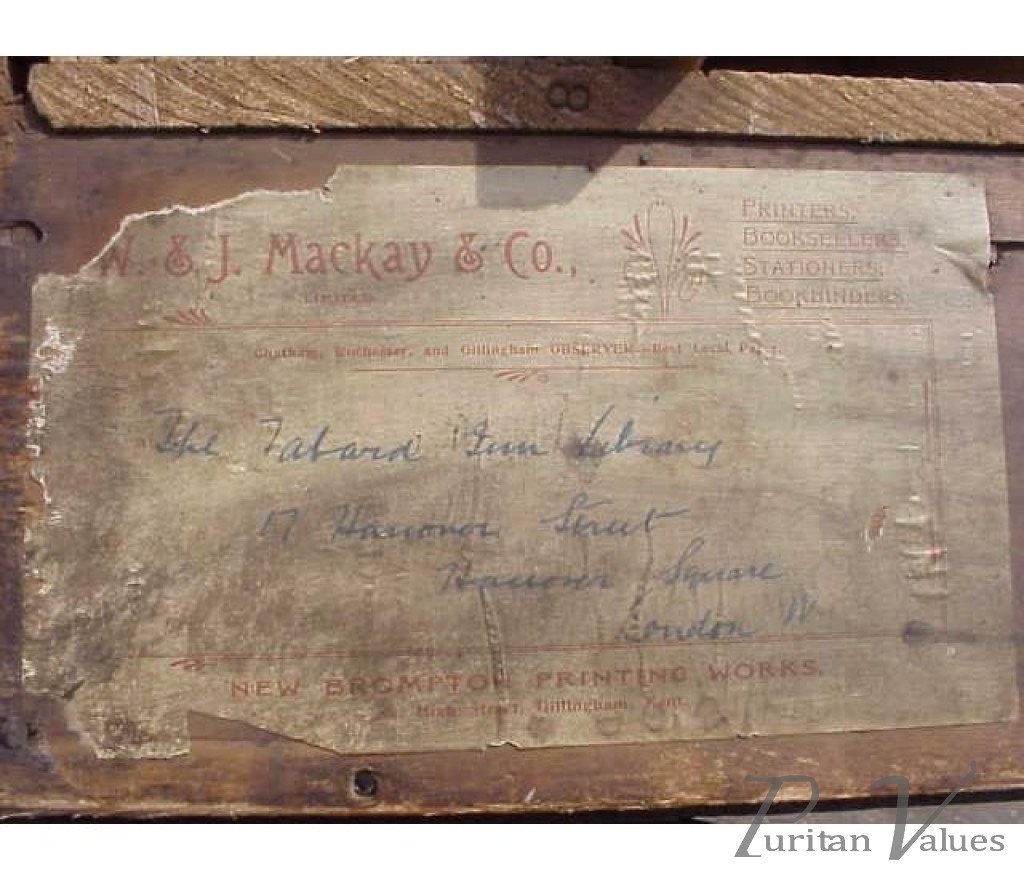 8
W. & J. Mackay & Co.,
LIMITED
PRINTERS,
BOOKSELLERS,
STATIONERS,
BOOKBINDERS
Chatham, Rochester, and Gillingham OBSERVER—Best Local Paper
The Tabard Inn Library
17 Hanover Street
Hanover Square
London W
NEW BROMPTON PRINTING WORKS.
High Street, Gillingham, Kent.
Puritan Values